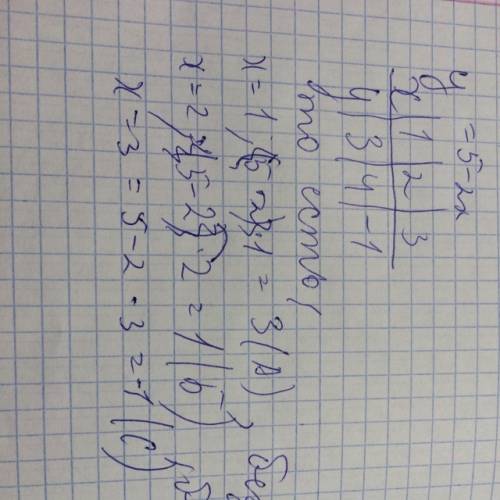 y = 5-2x
x | 1 | 2 | 3
y | 3 | 4 | -1
то есть,
x = 1, 5-2·1 = 3 (А)
x = 2, 5-2·2 = 1 (б)
x = 3 = 5-2·3 = -1 (С)